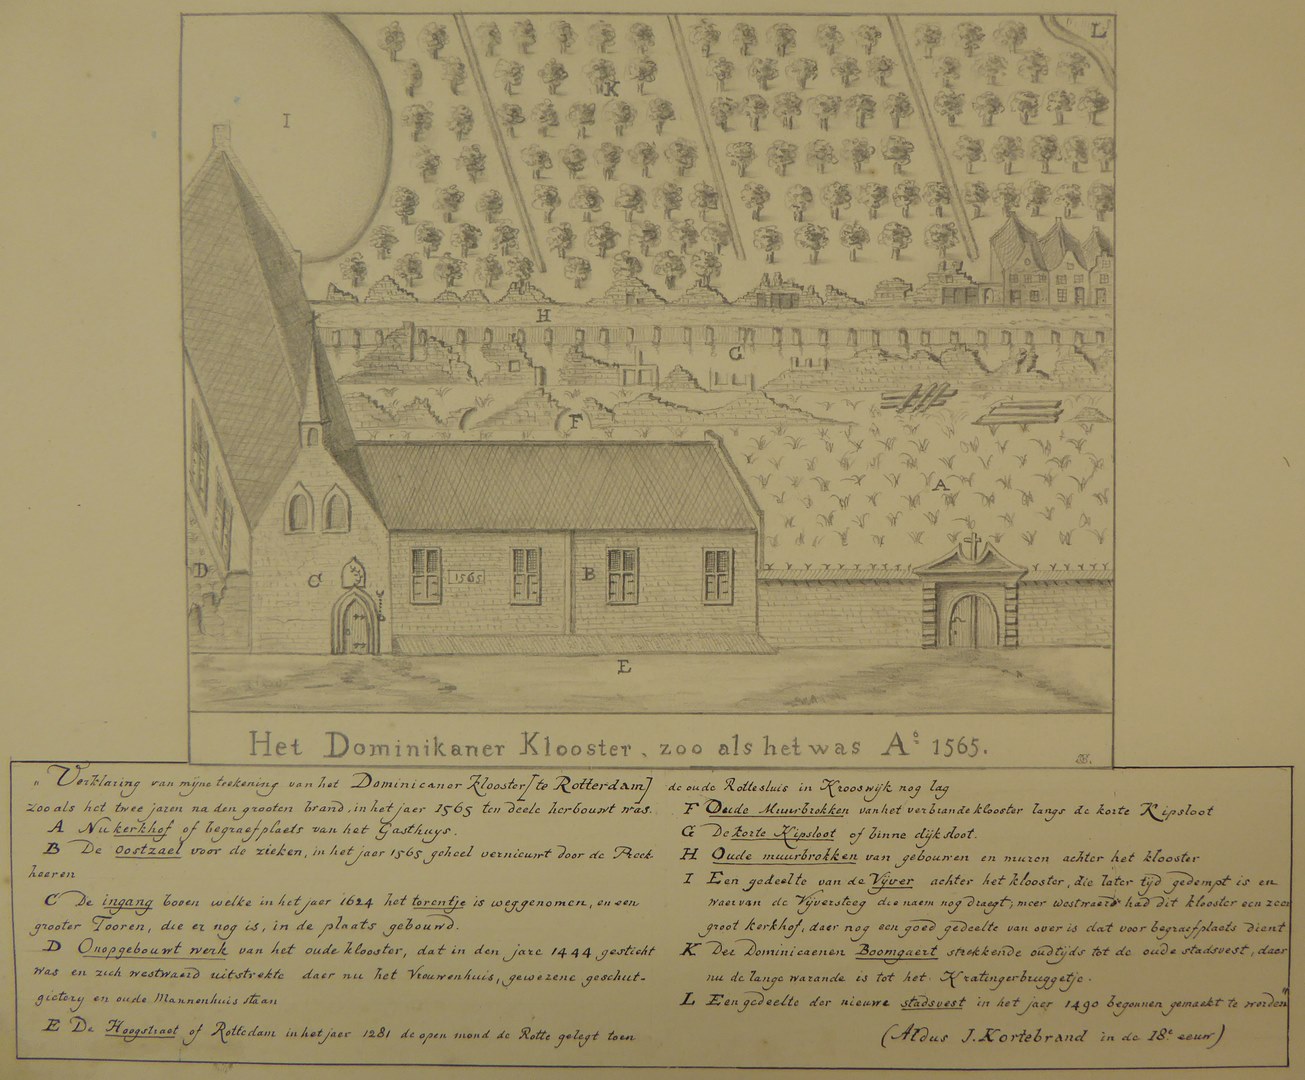 L
K
I
H
G
F
A
D
C
1565
B
E
Het Dominikaner Klooster, zoo als het was Aº 1565.
„ Verklaring van mijne teekening van het Dominicaner Klooster [te Rotterdam]
zoo als het twee jaren na den grooten brand, in het jaer 1565 ten deele herbouwt was.
A Nu kerkhof of begraefplaets van het Gasthuys.
B De Oostzael voor de zieken, in het jaer 1565 geheel vernieuwt door de
heeren
C De ingang boven welke in het jaer 1624 het torentje is weggenomen, en een
grooter Tooren, die er nog is, in de plaats gebouwd.
D Onopgebouwt werk van het oude klooster, dat in den jare 1444 gesticht
was en zich westwaerd uitstrekte daer nu het Vrouwenhuis, gewezene geschut-
gietery en oude Mannenhuis staan
E De Hoogstraet of Rottedam in het jaer 1281 de open mond de Rotte gelegt toen
de oude Rottesluis in Krooswijk nog lag
F Oude Muurbrokken van het verbrande klooster langs de korte Kipsloot
G De korte Kipsloot of binne dijksloot.
H Oude muurbrokken van gebouwen en muren achter het klooster
I Een gedeelte van de Vijver achter het klooster, die later tijd gedempt is en
waervan de Vijversteeg die naem nog draegt, meer westwaerd had dit klooster een zeer
groot kerkhof, daer nog een goed gedeelte van over is dat voor begraefplaets dient
K Der Dominicaenen Boomgaert strekkende oudtijds tot de oude stadsvest, daer
nu de lange warande is tot het Kratingerbruggetje.
L Een gedeelte der nieuwe stadsvest in het jaer 1490 begonnen gemaekt te worden"
(Aldus J. Kortebrand in de 18e eeuw)